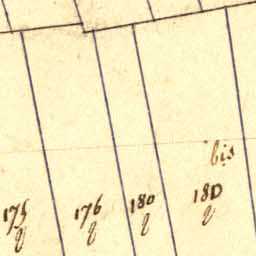 bis
175 176 180 180